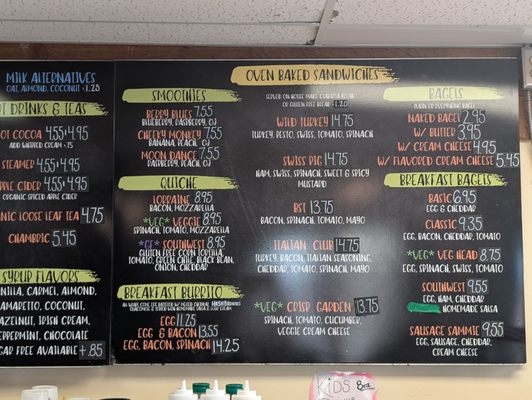 MILK ALTERNATIVES
OAT, ALMOND, COCONUT - 1.25
T DRINKS & TEAS
OT COCOA 4.55 4.95
ADD WHIPPED CREAM - .75
STEAMER 4.55 4.95
PPLE CIDER 4.55 4.95
ORGANIC SPICED APPLE CIDER
NIC LOOSE LEAF TEA 4.75
CHAMBRIC 5.45
SYRUP FLAVORS
NILLA, CARMEL, ALMOND,
AMARETTO, COCONUT,
AZELNUT, IRISH CREAM,
EPPERMINT, CHOCOLATE
GAR FREE AVAILABLE +.85
SMOOTHIES
BERRY BLUES 7.55
BLUEBERRY, RASPBERRY, OJ
CHEEKY MONKEY 7.55
BANANA, PEACH, OJ
MOON DANCE 7.55
RASPBERRY, PEACH, OJ
QUICHE
LORRAINE 8.95
BACON, MOZZARELLA
*VEG* VEGGIE 8.95
SPINACH, TOMATO, MOZZARELLA
*GF* SOUTHWEST 8.95
GLUTEN FREE CORN TORTILLA
TOMATO, GREEN CHILE, BLACK BEAN,
ONION, CHEDDAR
BREAKFAST BURRITO
EGG 11.25
EGG & BACON 13.55
EGG, BACON, SPINACH 14.25
OVEN BAKED SANDWICHES
SERVED ON HOUSE MADE CIABATTA BREAD
OR GLUTEN FREE BREAD - 1.20
WILD TURKEY 14.75
TURKEY, PESTO, SWISS, TOMATO, SPINACH
SWISS PIG 14.75
HAM, SWISS, SPINACH, SWEET & SPICY
MUSTARD
BST 13.75
BACON, SPINACH, TOMATO, MAYO
ITALIAN CLUB 14.75
TURKEY, BACON, ITALIAN SEASONING,
CHEDDAR, TOMATO, SPINACH, MAYO
*VEG* CRISP GARDEN 13.75
SPINACH, TOMATO, CUCUMBER,
VEGGIE CREAM CHEESE
BAGELS
PLAIN OR EVERYTHING BAGEL
NAKED BAGEL 2.95
W/ BUTTER 3.95
W/ CREAM CHEESE 4.95
W/ FLAVORED CREAM CHEESE 5.45
BREAKFAST BAGELS
BASIC 6.95
EGG & CHEDDAR
CLASSIC 9.35
EGG, BACON, CHEDDAR, TOMATO
*VEG* VEG HEAD 8.75
EGG, SPINACH, SWISS, TOMATO
SOUTHWEST 9.55
EGG, HAM, CHEDDAR
HOMEMADE SALSA
SAUSAGE SAMMIE 9.55
EGG, SAUSAGE, CHEDDAR,
CREAM CHEESE
KIDS 8oz